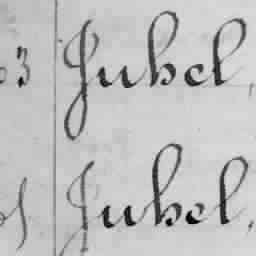 3 Juhel,
Juhel,